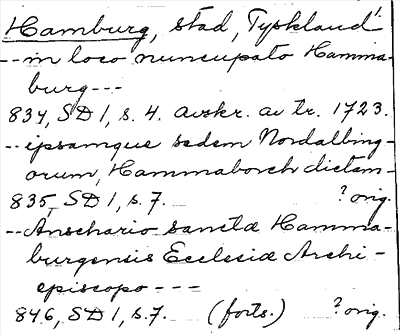 Hamburg, stad, Tyskland 1.
-- in loco nuncupato Hamma-
burg ---
834, SD 1, s. 4. avskr. av tr. 1723.
-- ipsamque sedem Nordalbing-
orum, Hammaborch dictam-
835, SD 1, s. 7. ? orig.
-- Anschario sanctæ Hamma-
burgensis Ecclesiæ Archi-
episcopo ---
846, SD 1, s. 7. (forts.) ? orig.